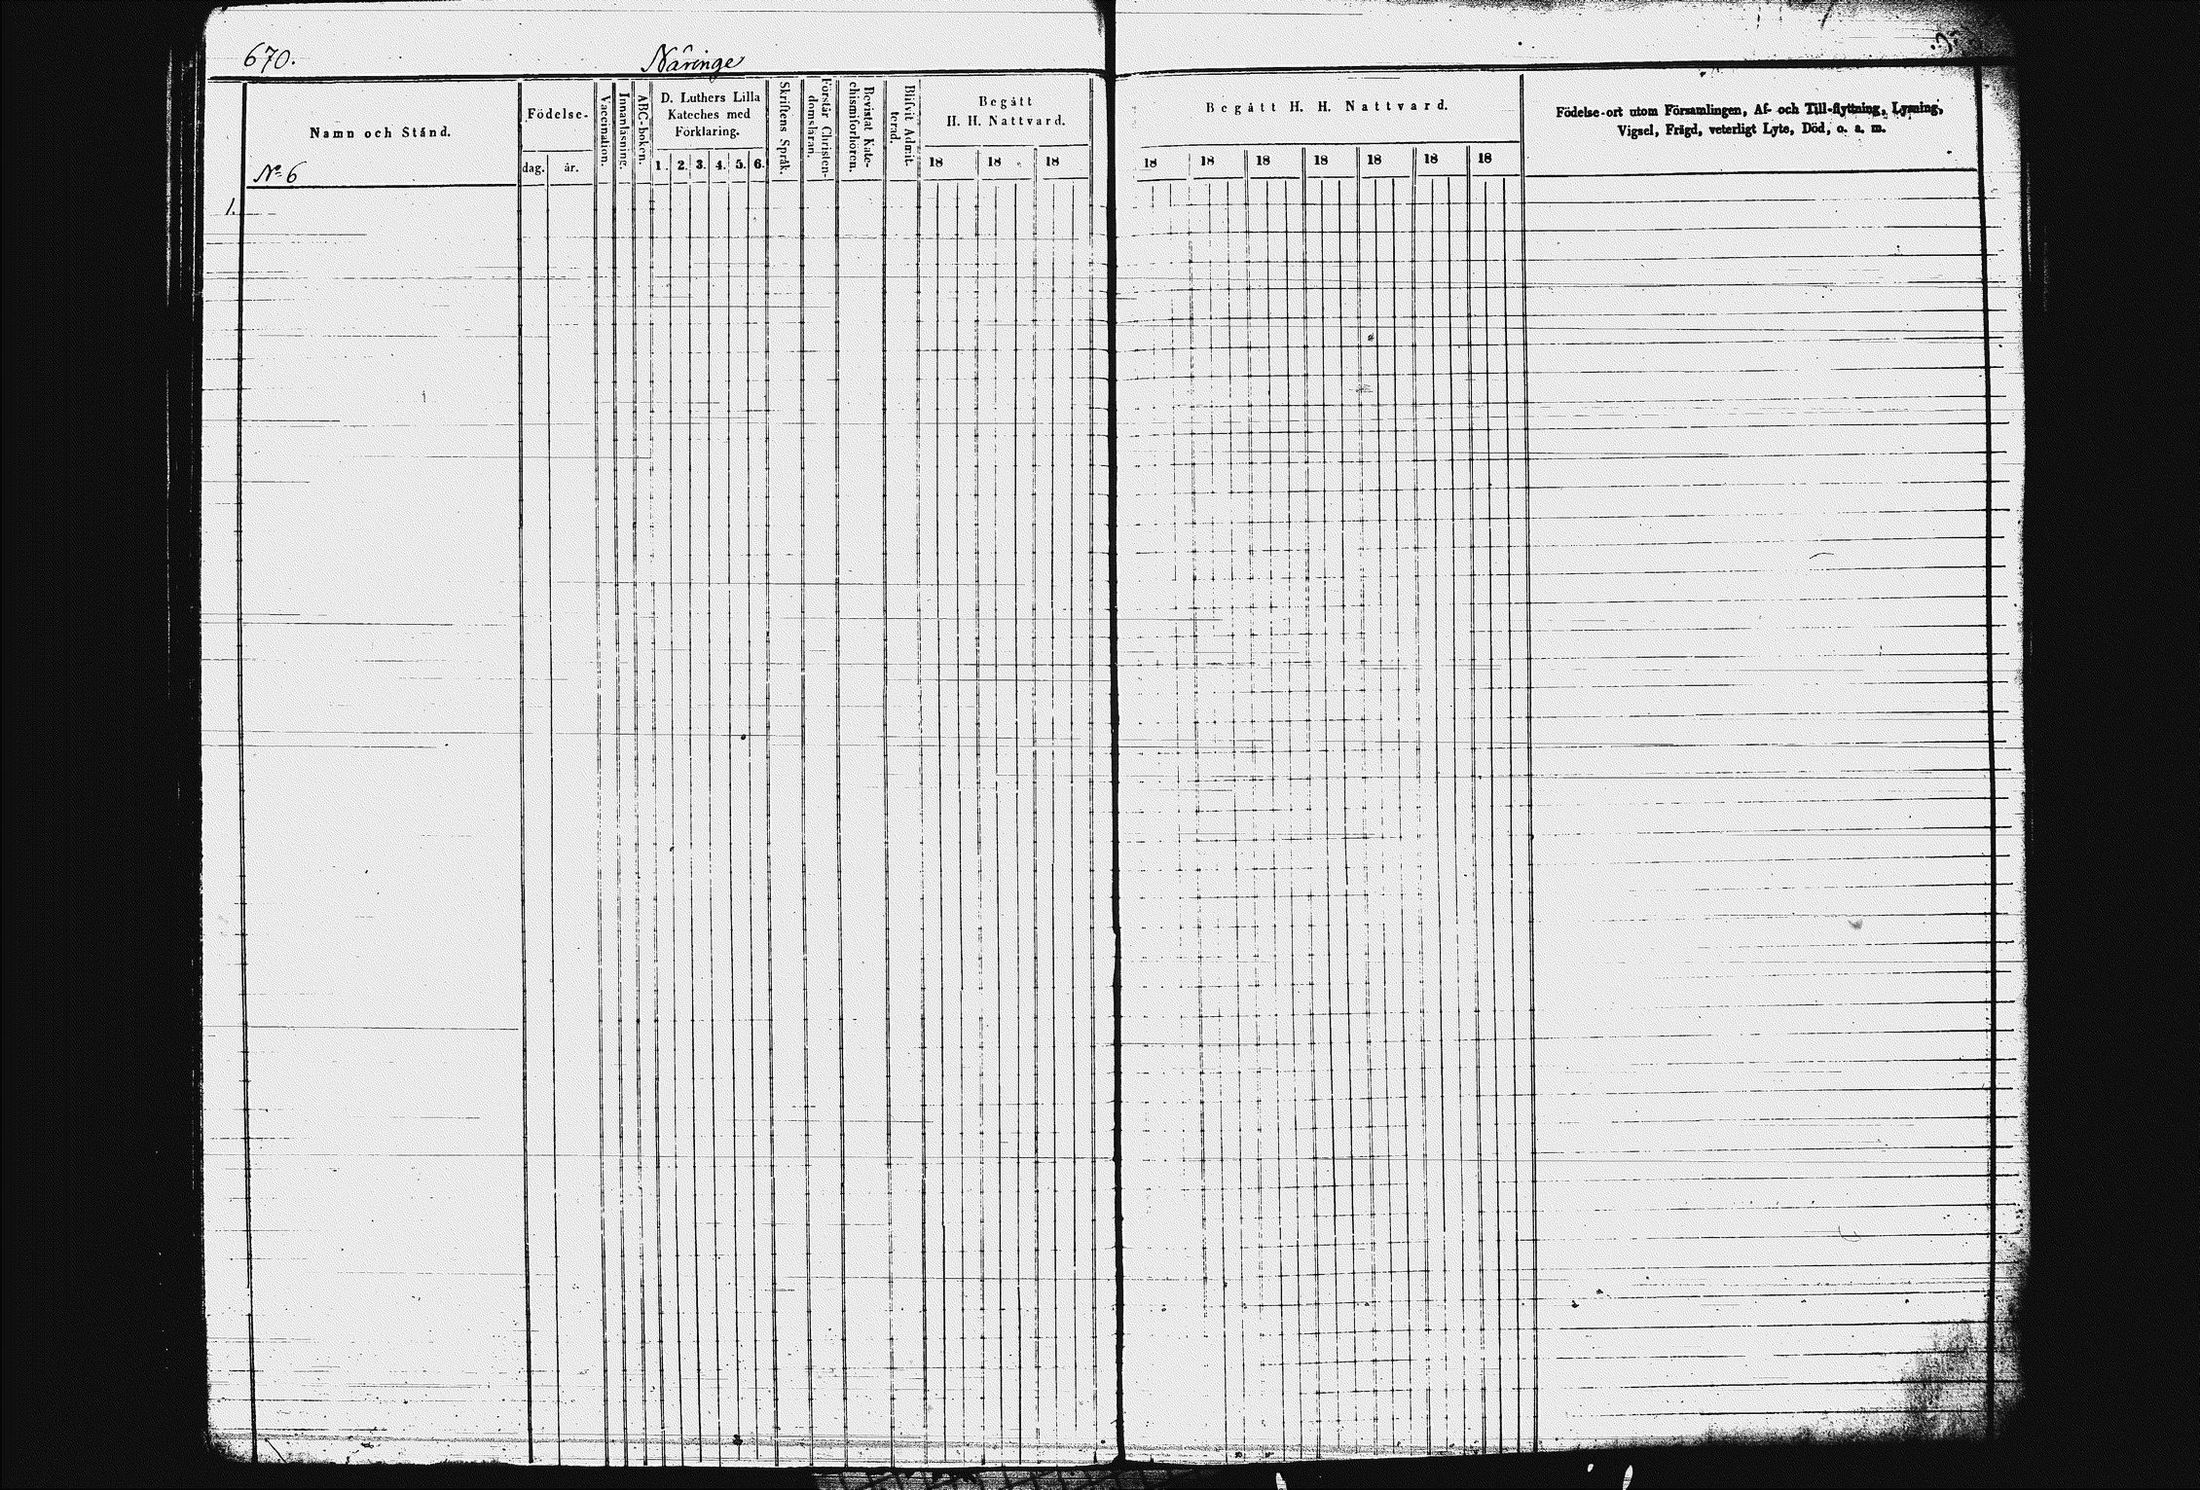 670.
Näringe
Namn och Stånd.
No 6
1.
Födelse-
dag. år.
Vaccination.
Innanläsning.
ABC-boken.
D. Luthers Lilla
Kateches med
Förklaring.
1. 2. 3. 4. 5. 6.
Skriftens Språk.
Förstår Christen-
domsläran.
Bevistat Kate-
chismiförhören.
Blifvit Admit-
terad.
Begått
H. H. Nattvard.
18 18 18
Begått H. H. Nattvard.
18 18 18 18 18 18 18
Födelse-ort utom Församlingen, Af- och Till-flyttning, Lysning,
Vigsel, Frägd, veterligt Lyte, Död, o. s. m.